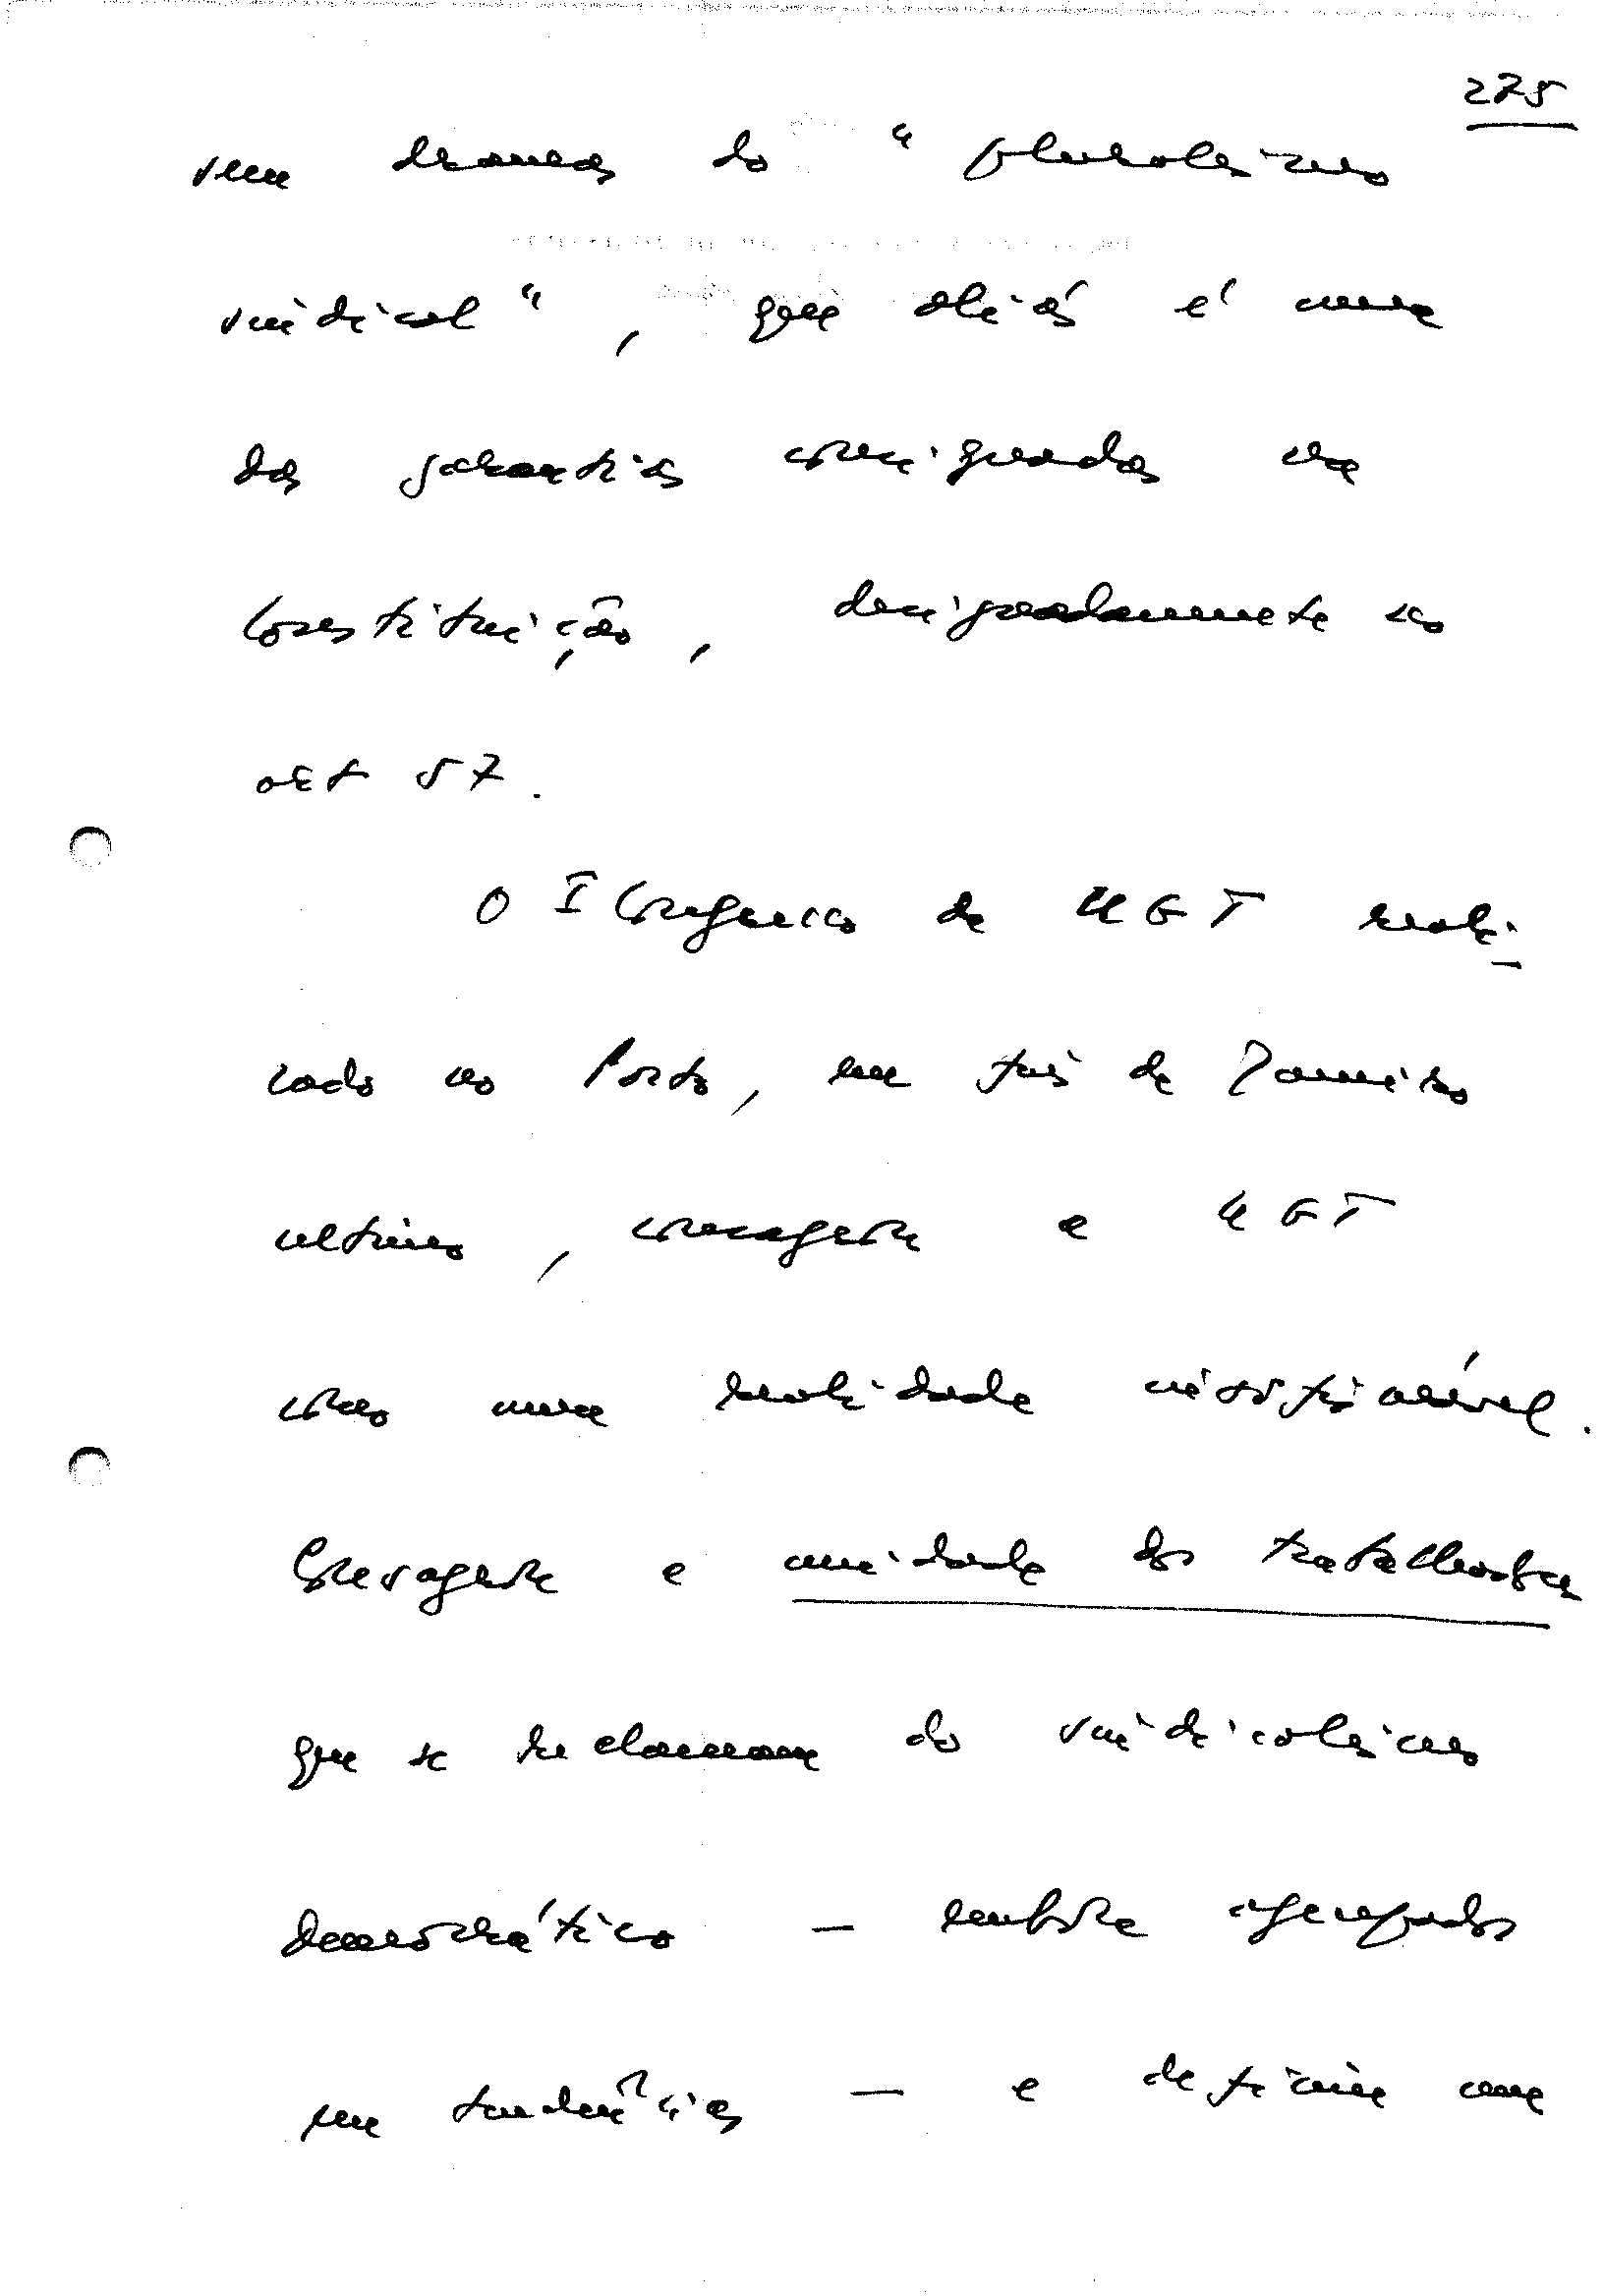 275
sem drama do "pluralismo
sindical", que aliás é uma
das garantias consignadas na
Constituição, designadamente no
art 57.
O I Congresso da UGT reali-
zado no Porto, em fins de Janeiro
ultimo, consagrou a UGT
como uma realidade
Consagrou a unidade dos trabalhadores
que se reclamam do sindicalismo
democrático — embora agrupados
em tendências — e definiu uma